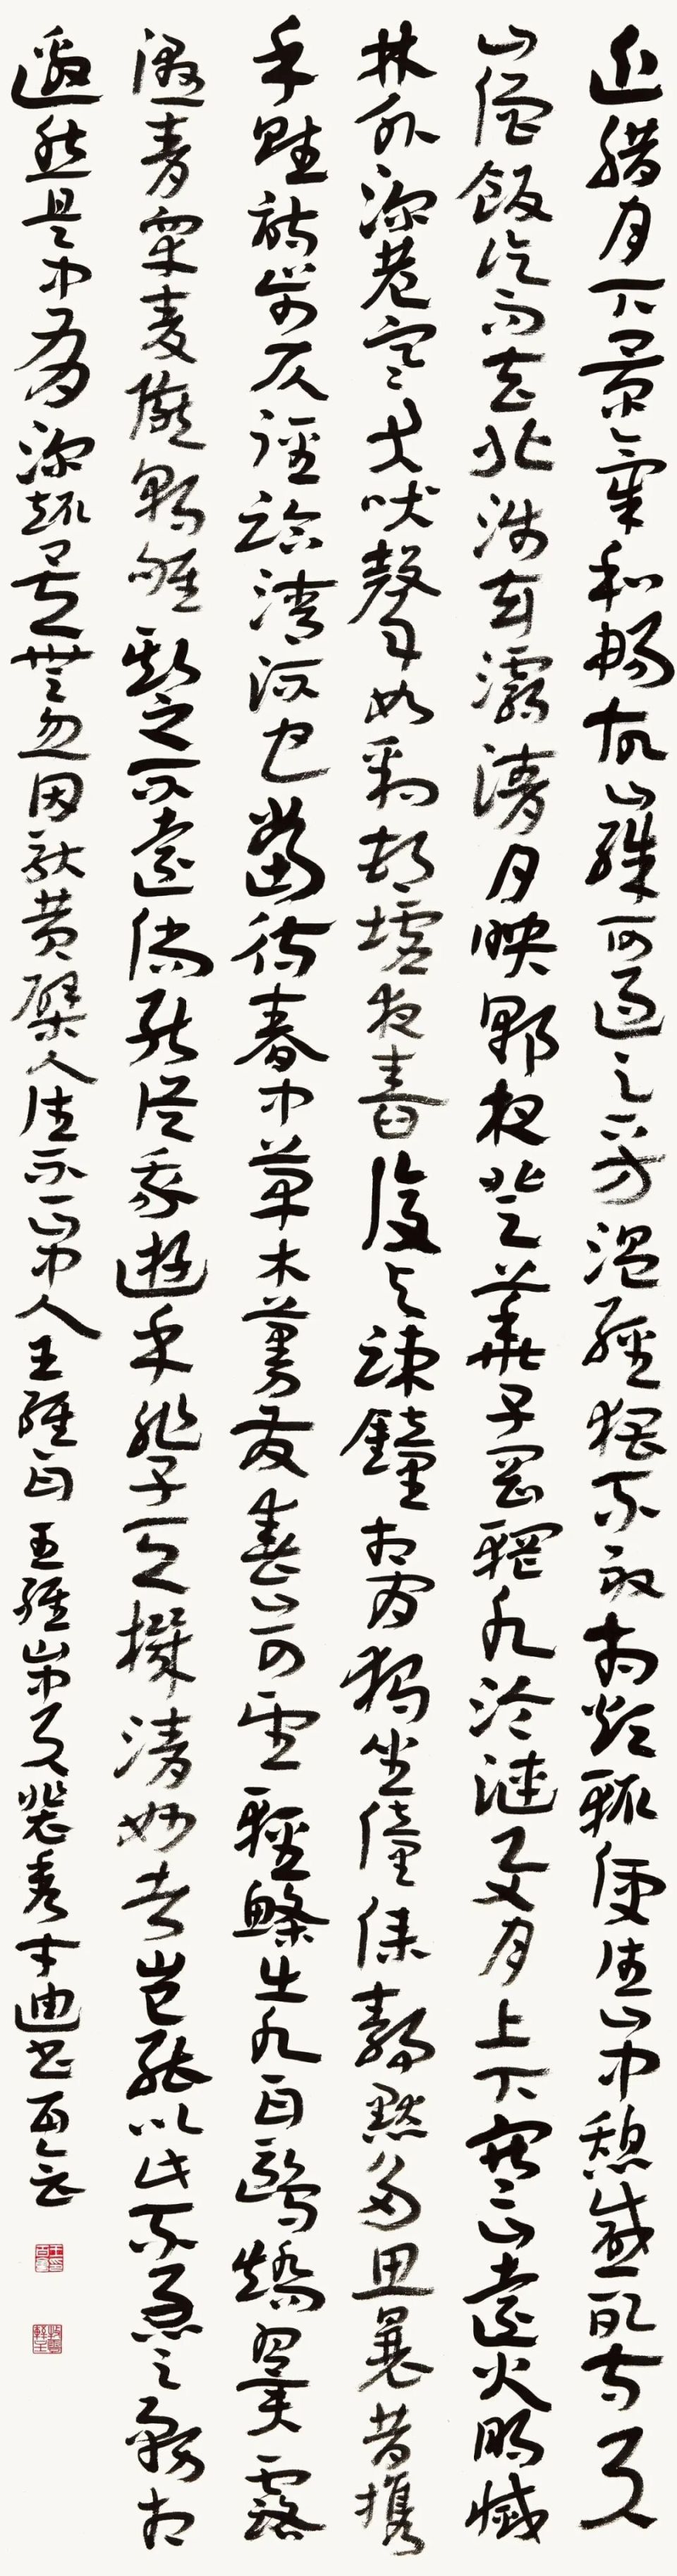 近臘月下景氣和暢故山殊可過足下方溫經猥不敢相煩輒便往山中憩感配寺與
山僧飯訖而去北涉玄灞清月映郭夜登華子岡輞水淪漣與月上下寒山遠火明滅
林外深巷寒犬吠聲如豹村墟夜舂復與疎鐘相間獨坐僮僕靜默多思曩昔攜
手賦詩步仄逕臨清流也當待春中草木蔓發春山可望輕鯈出水白鷗矯翼露
濕青皋麥隴朝雊斯之不遠倘能從我遊乎非子天機清妙者豈能以此不急之務相
邀然是中有深趣矣無忽因馱黃檗人往不一山中人王維白王維山中與裴秀才迪書